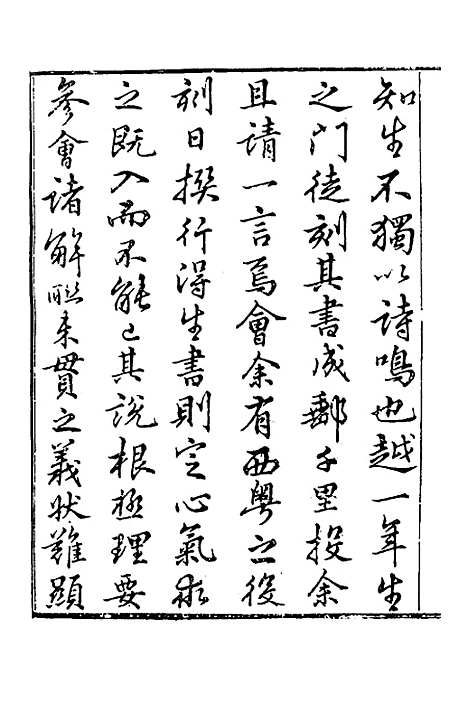 知生不獨以詩鳴也越一年生
之門徒刻其書成郵千里投余
且請一言焉會余有西粵之役
刻日撰行得生書則定心氣求
之既入而不能已其說根極理要
參會諸解聯末貫之義狀難顯